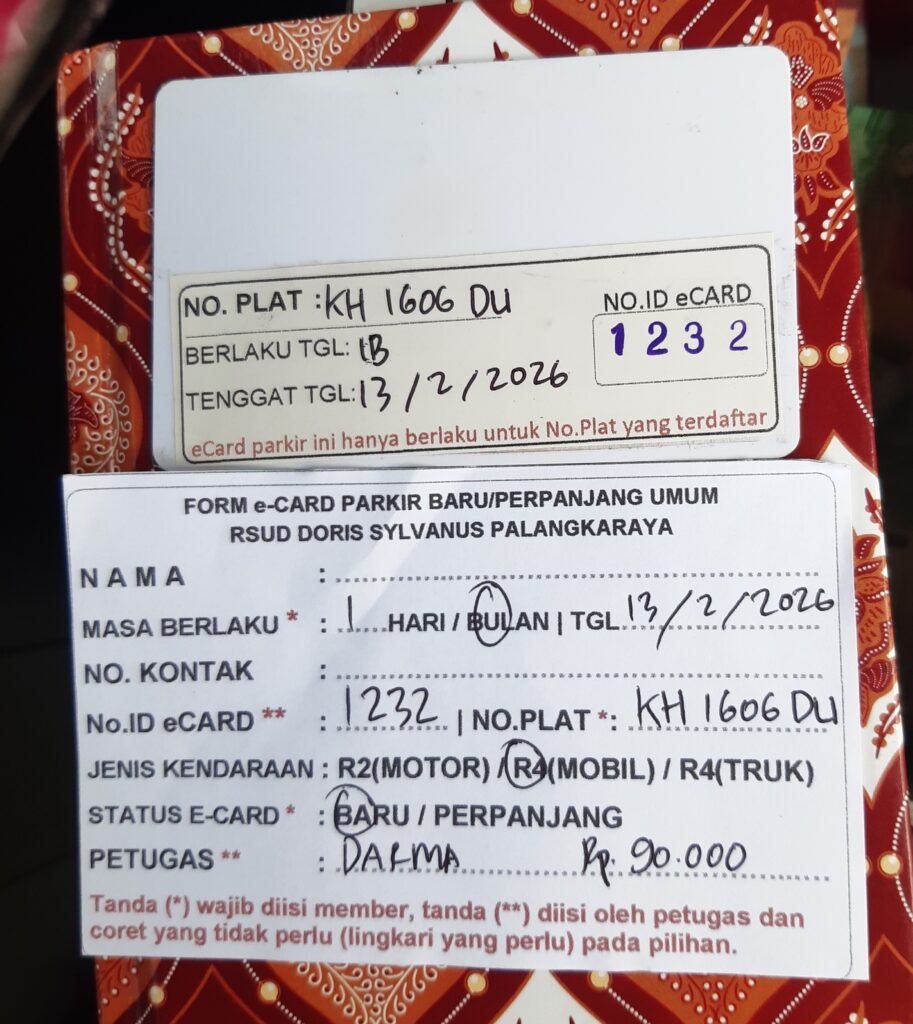 NO. PLAT : KH 1606 DU
NO.ID eCARD
1232
BERLAKU TGL: 1B
TENGGAT TGL: 13/2/2026
eCard parkir ini hanya berlaku untuk No.Plat yang terdaftar
FORM e-CARD PARKIR BARU/PERPANJANG UMUM
RSUD DORIS SYLVANUS PALANGKARAYA
NAMA : ........................................................
MASA BERLAKU * : 1 HARI / BULAN | TGL 13/2/2026
NO. KONTAK : ........................................................
No.ID eCARD ** : 1232 | NO.PLAT *: KH 1606 DU
JENIS KENDARAAN : R2(MOTOR) / R4(MOBIL) / R4(TRUK)
STATUS E-CARD * : BARU / PERPANJANG
PETUGAS ** : DARMA Rp. 90.000
Tanda (*) wajib diisi member, tanda (**) diisi oleh petugas dan
coret yang tidak perlu (lingkari yang perlu) pada pilihan.